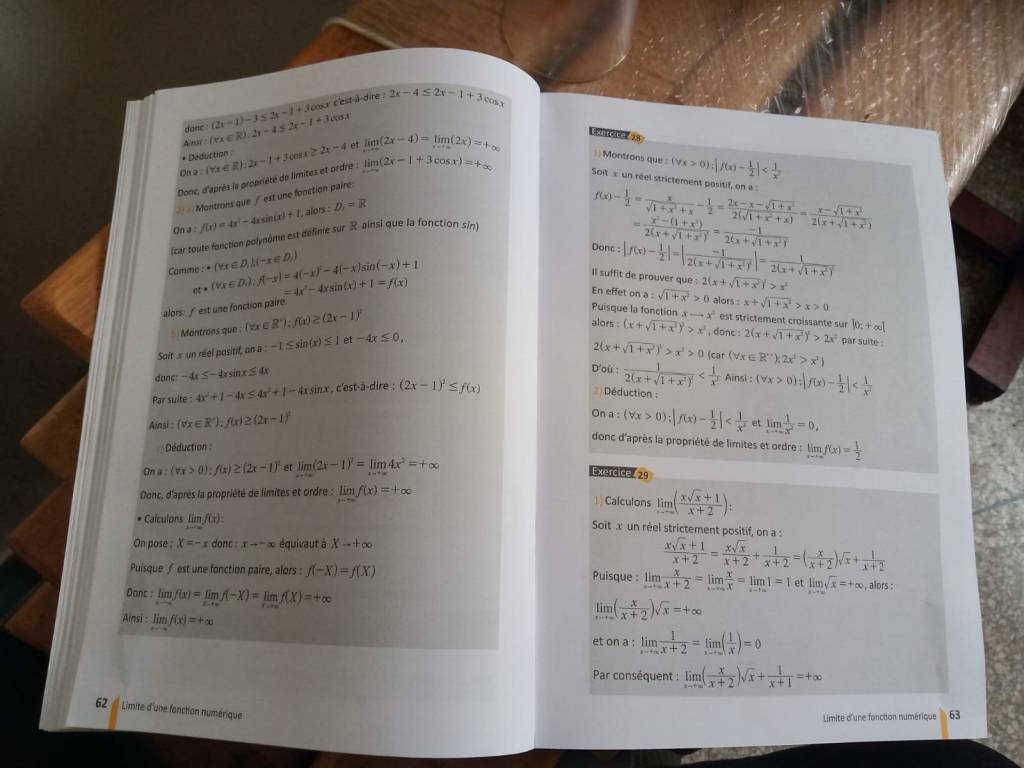 donc : (2x−1)−3 ≤ 2x−1+3cosx c'est-à-dire : 2x−4 ≤ 2x−1+3cosx
Ainsi : (∀x∈ℝ); 2x−4 ≤ 2x−1+3cosx
• Déduction :
On a : (∀x∈ℝ); 2x−1+3cosx ≥ 2x−4 et lim_{x→+∞}(2x−4) = lim_{x→+∞}(2x) = +∞
Donc, d'après la propriété de limites et ordre : lim_{x→+∞}(2x−1+3cosx) = +∞
2) a) Montrons que f est une fonction paire:
On a : f(x) = 4x²−4x sin(x)+1, alors : D_f = ℝ
(car toute fonction polynôme est définie sur ℝ ainsi que la fonction sin)
Comme : • (∀x∈D_f);(−x∈D_f)
et • (∀x∈D_f); f(−x) = 4(−x)²−4(−x)sin(−x)+1
= 4x²−4x sin(x)+1 = f(x)
alors: f est une fonction paire.
b) Montrons que : (∀x∈ℝ⁺); f(x) ≥ (2x−1)²
Soit x un réel positif, on a : −1 ≤ sin(x) ≤ 1 et −4x ≤ 0,
donc: −4x ≤ −4x sin x ≤ 4x
Par suite : 4x²+1−4x ≤ 4x²+1−4x sin x, c'est-à-dire : (2x−1)² ≤ f(x)
Ainsi : (∀x∈ℝ⁺); f(x) ≥ (2x−1)²
c) Déduction :
On a : (∀x>0); f(x) ≥ (2x−1)² et lim_{x→+∞}(2x−1)² = lim_{x→+∞}4x² = +∞
Donc, d'après la propriété de limites et ordre : lim_{x→+∞} f(x) = +∞
• Calculons lim_{x→−∞} f(x) :
On pose : X = −x donc : x→−∞ équivaut à X→+∞
Puisque f est une fonction paire, alors : f(−X) = f(X)
Donc : lim_{x→−∞} f(x) = lim_{X→+∞} f(−X) = lim_{X→+∞} f(X) = +∞
Ainsi : lim_{x→−∞} f(x) = +∞
62 Limite d'une fonction numérique
Exercice 28
1) Montrons que : (∀x>0); |f(x)−1/2| < 1/x²
Soit x un réel strictement positif, on a :
f(x)−1/2 = x/(√(1+x²)+x) − 1/2 = (2x−x−√(1+x²))/(2(√(1+x²)+x)) = (x−√(1+x²))/(2(x+√(1+x²)))
= (x²−(1+x²))/(2(x+√(1+x²))²) = −1/(2(x+√(1+x²))²)
Donc : |f(x)−1/2| = |−1/(2(x+√(1+x²))²)| = 1/(2(x+√(1+x²))²)
Il suffit de prouver que : 2(x+√(1+x²))² > x²
En effet on a : √(1+x²) > 0 alors : x+√(1+x²) > x > 0
Puisque la fonction x⟶x² est strictement croissante sur ]0;+∞[
alors : (x+√(1+x²))² > x², donc : 2(x+√(1+x²))² > 2x² par suite :
2(x+√(1+x²))² > x² > 0 (car (∀x∈ℝ⁺*); 2x² > x²)
D'où : 1/(2(x+√(1+x²))²) < 1/x² Ainsi : (∀x>0); |f(x)−1/2| < 1/x²
2) Déduction :
On a : (∀x>0); |f(x)−1/2| < 1/x² et lim_{x→+∞} 1/x² = 0,
donc d'après la propriété de limites et ordre : lim_{x→+∞} f(x) = 1/2
Exercice 29
1) Calculons lim_{x→+∞} ((x√x+1)/(x+2)) :
Soit x un réel strictement positif, on a :
(x√x+1)/(x+2) = x√x/(x+2) + 1/(x+2) = (x/(x+2))√x + 1/(x+2)
Puisque : lim_{x→+∞} x/(x+2) = lim_{x→+∞} x/x = lim_{x→+∞} 1 = 1 et lim_{x→+∞} √x = +∞, alors :
lim_{x→+∞} (x/(x+2))√x = +∞
et on a : lim_{x→+∞} 1/(x+2) = lim_{x→+∞} (1/x) = 0
Par conséquent : lim_{x→+∞} (x/(x+2))√x + 1/(x+1) = +∞
Limite d'une fonction numérique 63